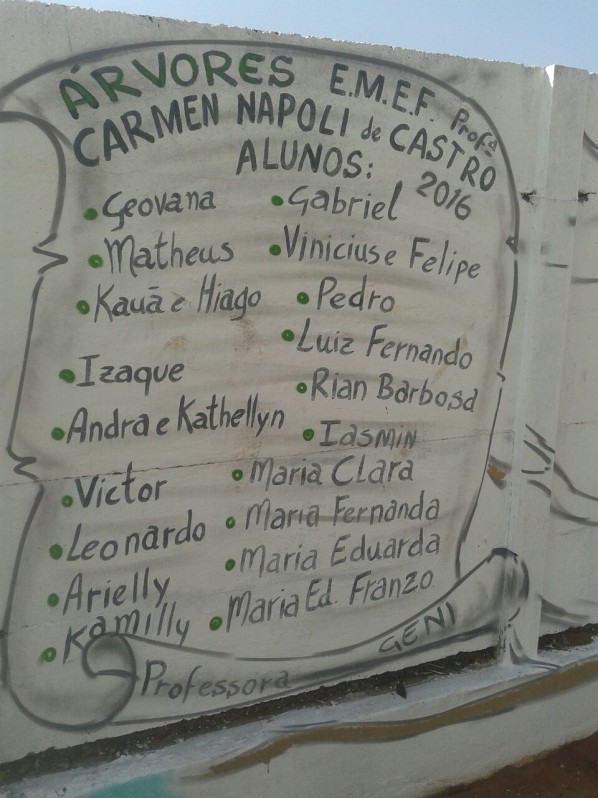 ÁRVORES E.M.E.F. Profª
CARMEN NAPOLI de CASTRO
ALUNOS: 2016
• Geovana
• Matheus
• Kauã e Hiago
• Izaque
• Andra e Kathellyn
• Victor
• Leonardo
• Arielly
• Kamilly
• Gabriel
• Vinicius e Felipe
• Pedro
• Luiz Fernando
• Rian Barbosa
• Iasmin
• Maria Clara
• Maria Fernanda
• Maria Eduarda
• Maria Ed. Franzo
Professora GENI